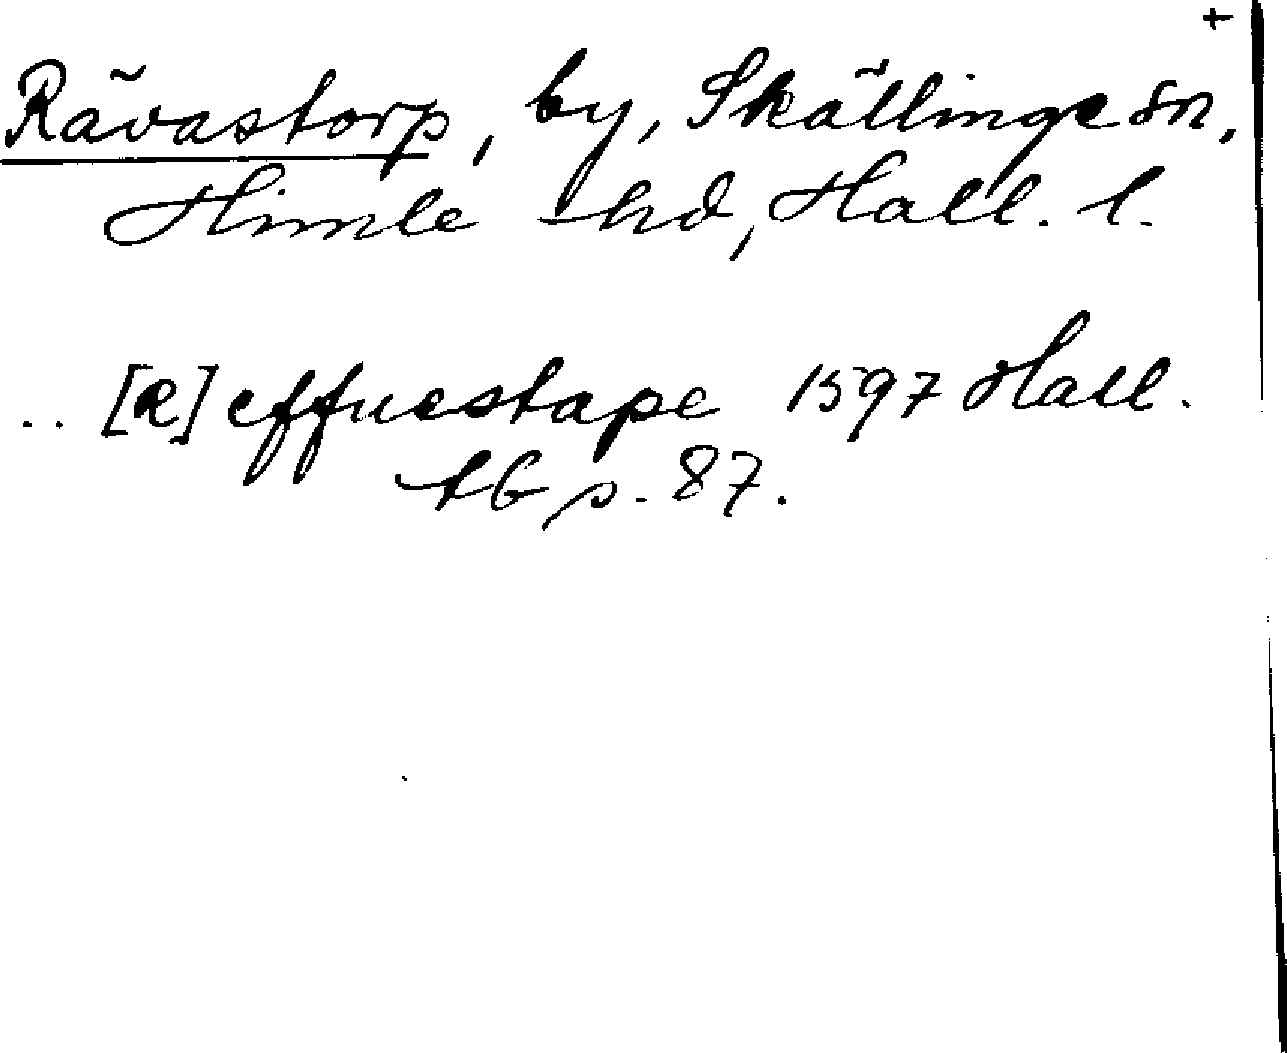 +
Rävastorp, by, Skällinge sn,
Himle hd, Hall. l.
.. [R]effuestape 1597 Hall.
tG s. 87.